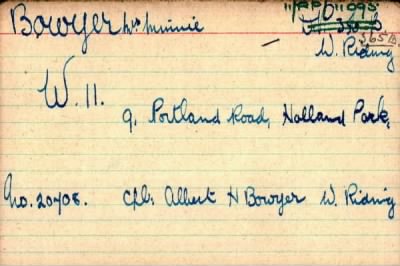 Bowyer Mrs Minnie
11/RP/6/11095
W. Riding
W. 11.
9, Portland Road, Holland Park,
No. 20408. Cpl. Albert H Bowyer W. Riding